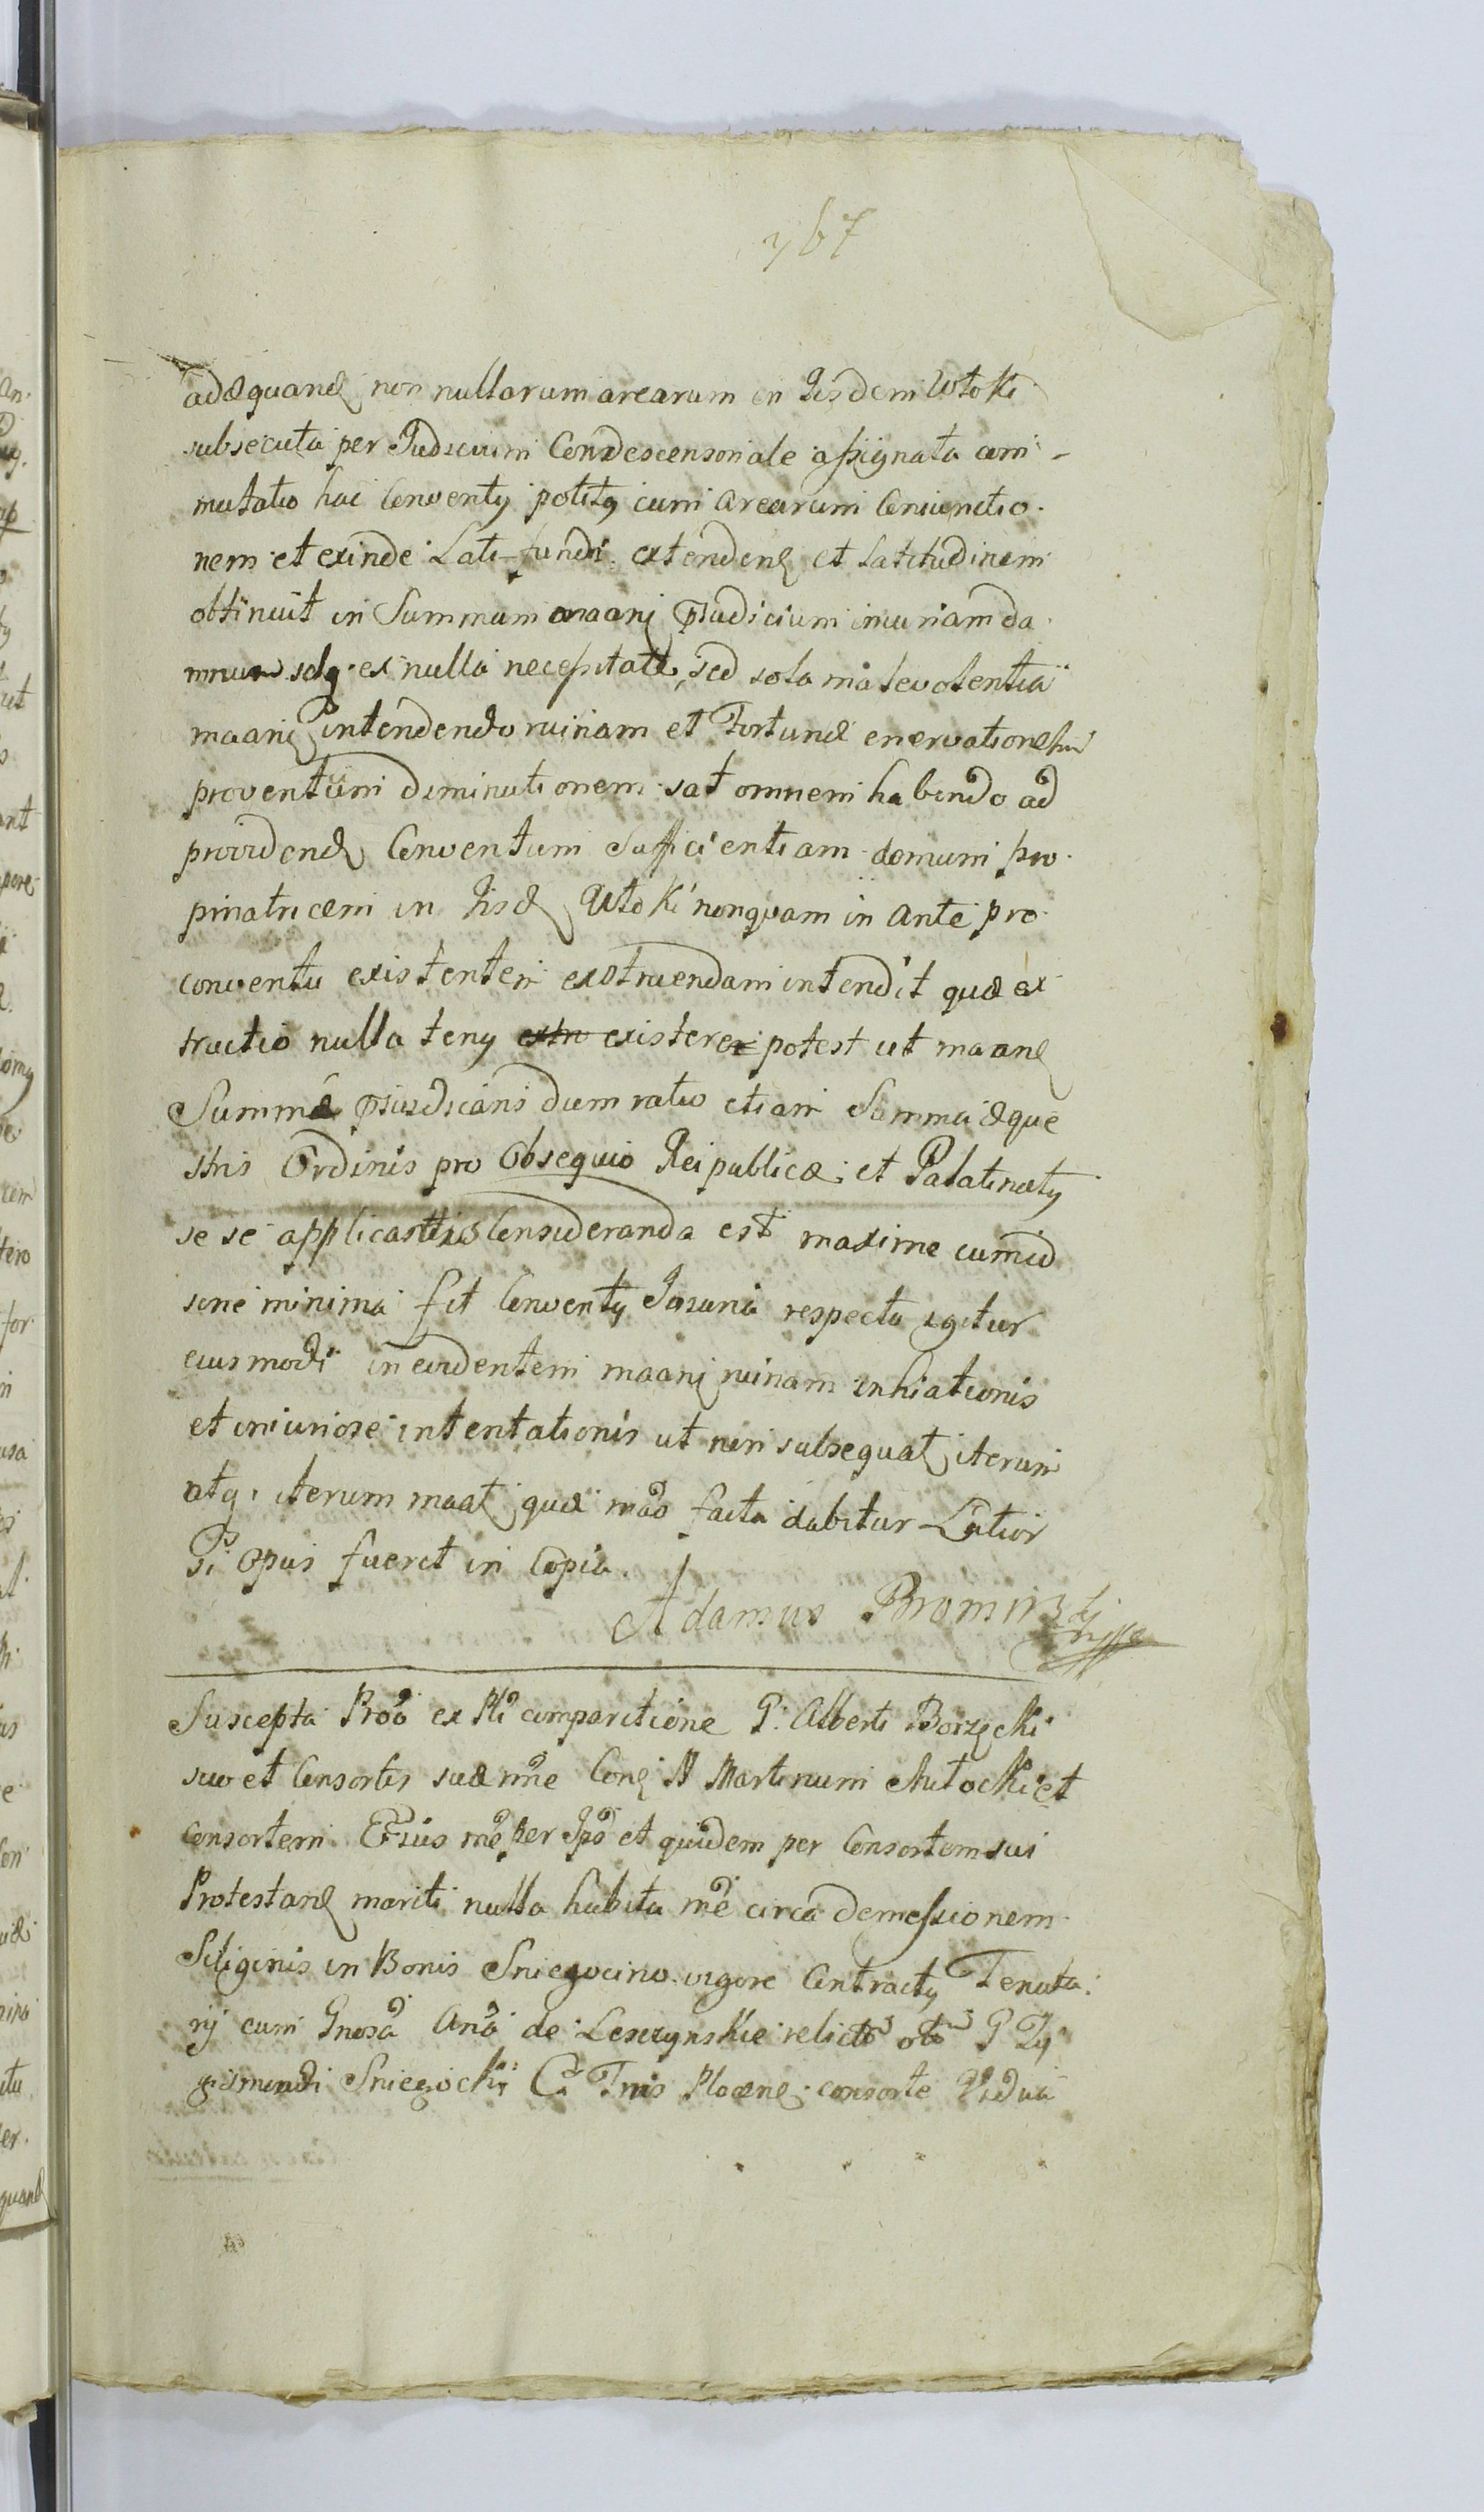 767
adæquand non nullarum arearum in Iisdem Wtoki
subsecuta per Iudicium Condescensoriale assignata com-
mutatio hac Conventus potitus cum arearum Coniunctio
nem et exinde Lati fundi extendend et Latitudinem
obtinuit in Summum maani præiudicium iniuriam da
mnum sdq ex nulla necessitate, sed sola malevolentia
maani intendendo ruinam et Fortunæ enervationem
proventum diminutionem sat omnem habendo ad
providend Conventum Sufficientiam domum pro
pinatricem in Iisd Wtoki nonquam in ante pro
conventu existentem exstruendam intendit quæ ex
tructio nulla tenus existere potest ut maand
Summæ præiudicans dum ratio etiam Summa æque
stris Ordinis pro Obsequio Reipublicæ et Palatinatus
se se applicantis Consideranda est maxime cum id
sine minima fit Conventus respectu igitur
eiusmodi in evidentem maani ruinam inhiationis
et iniuriose intentationis ut non subsequat iterum
atq iterum maat quæ mão facta dabitur Latior
Si Opus fuerit in Copia.
Adamus Bromirski
Suscepta Proõ ex Pli comparitione G. Alberti Borzęcki
suo et Consortis suæ nne Cong N Martinum et
Consortem Eiius mẽ per Ipõ et quidem per Consortem sui
Protestand mariti nulla habita mẽ circa demessionem
Siliginis in Bonis Sniegocino vigore Contractus Tenuta
rij cum Gnosã Anã de Leszczynskie relicta olim G Zy
gismundi Sniegocki C. Tris Plocens consorte Vidua